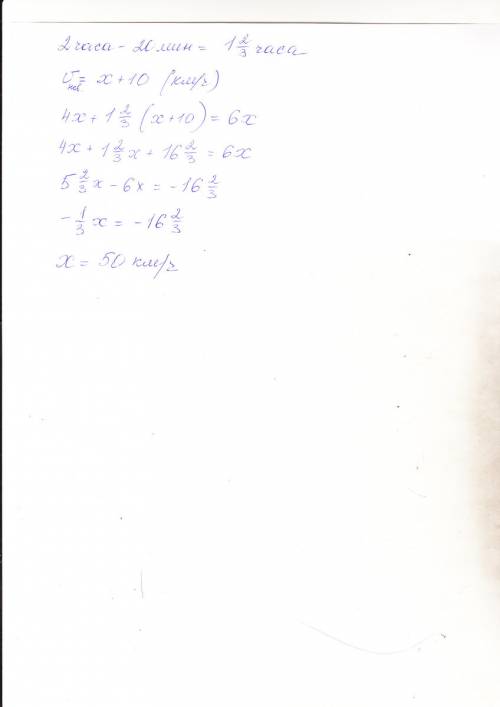 2 часа - 20 мин = 1 2/3 часа
υнов = x + 10 (км/ч)
4x + 1 2/3 (x + 10) = 6x
4x + 1 2/3 x + 16 2/3 = 6x
5 2/3 x - 6x = -16 2/3
- 1/3 x = -16 2/3
x = 50 км/ч